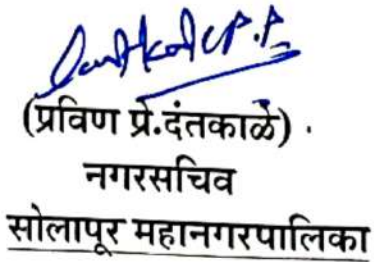 (प्रविण प्रे.दंतकाळे) .
नगरसचिव
सोलापूर महानगरपालिका